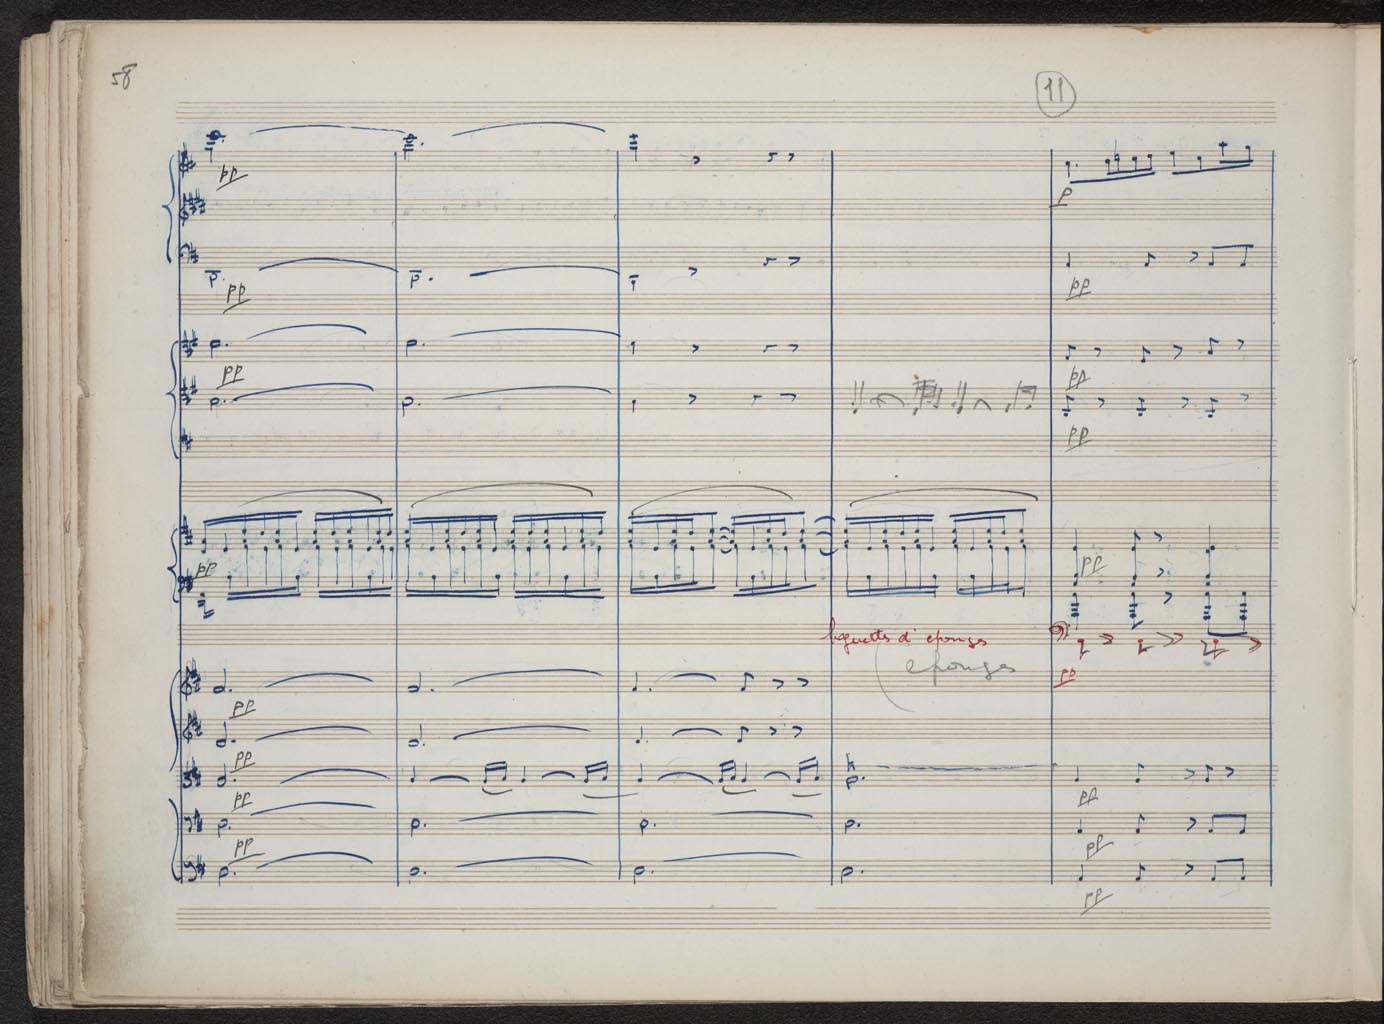 58
11
pp
p
pp
pp
pp
pp
pp
pp
pp
baguettes d'eponges
eponges
pp
pp
pp
pp
pp
pp
pp
pp